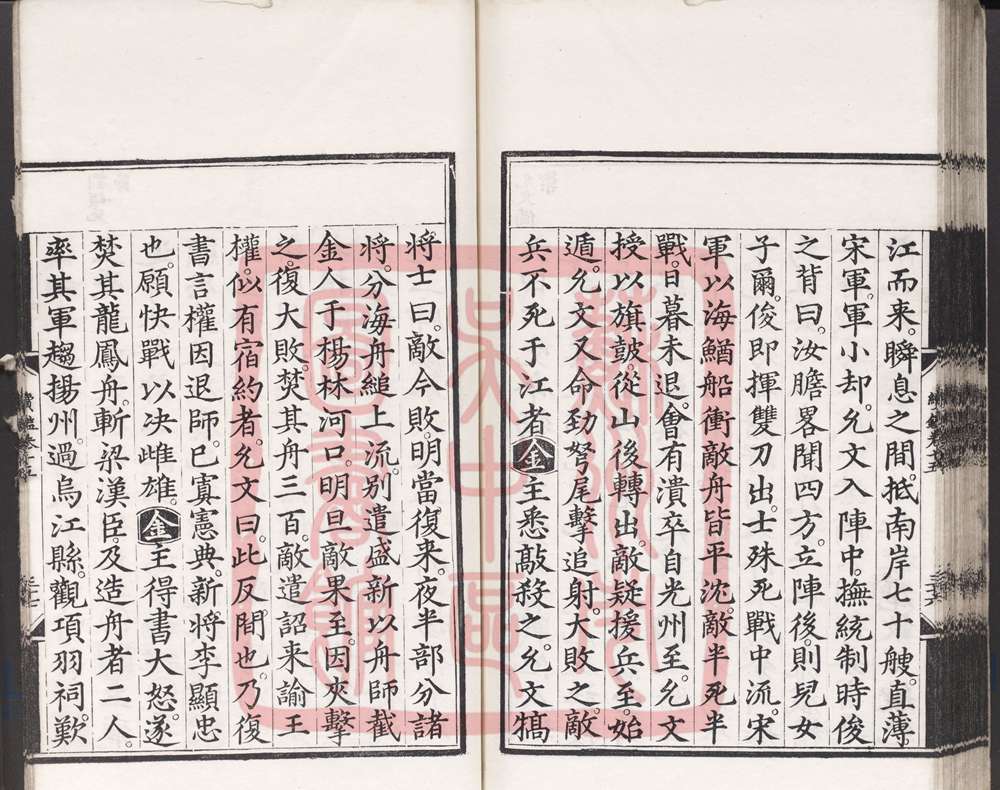 江而来。瞬息之間。抵南岸七十艘。直薄。
宋軍。軍小却。允文入陣中。撫統制時俊
之背曰。汝膽畧聞四方。立陣後。則兒女
子爾。俊即揮雙刀出。士殊死戰。中流。宋
軍以海鰌船衝敵舟。皆平沈。敵半死半
戰。日暮未退。會有潰卒自光州至。允文
授以旗鼓。從山後轉出。敵疑援兵至。始
遁。允文又命劲弩尾擊追射。大敗之。敵
兵不死于江者。金主悉敲殺之。允文犒
將士曰。敵今敗。明當復来。夜半部分諸
將。分海舟縋上流。别遣盛新以舟師截
金人于楊林河口。明旦敵果至。因夾擊
之。復大敗。焚其舟三百。敵遣詔来諭王
權。似有宿約者。允文曰。此反間也。乃復
書言。權因退師。已寘憲典。新將李顯忠
也。願快戰以决雌雄。金主得書大怒。遂
焚其龍鳳舟。斬梁漢臣。及造舟者二人。
率其軍趨揚州。過烏江縣。觀項羽祠。歎